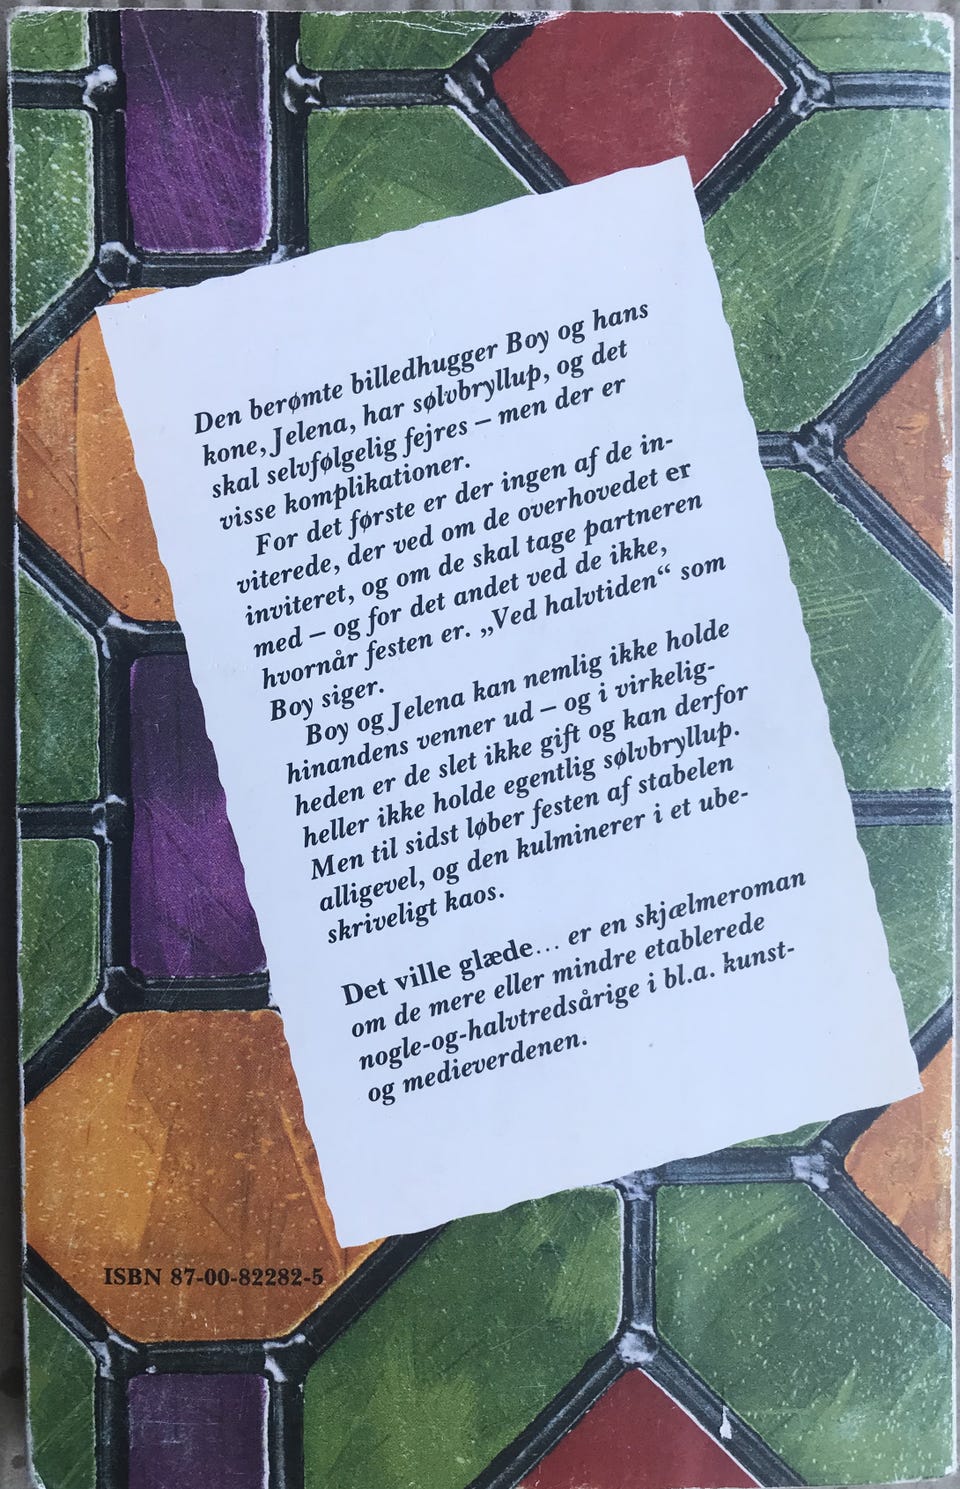 Den berømte billedhugger Boy og hans
kone, Jelena, har sølvbryllup, og det
skal selvfølgelig fejres – men der er
visse komplikationer.
For det første er der ingen af de in-
viterede, der ved om de overhovedet er
inviteret, og om de skal tage partneren
med – og for det andet ved de ikke,
hvornår festen er. „Ved halvtiden“ som
Boy siger.
Boy og Jelena kan nemlig ikke holde
hinandens venner ud – og i virkelig-
heden er de slet ikke gift og kan derfor
heller ikke holde egentlig sølvbryllup.
Men til sidst løber festen af stabelen
alligevel, og den kulminerer i et ube-
skriveligt kaos.
Det ville glæde... er en skjælmeroman
om de mere eller mindre etablerede
nogle-og-halvtredsårige i bl.a. kunst-
og medieverdenen.
ISBN 87-00-82282-5